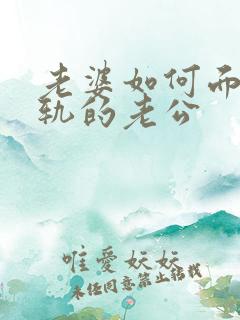 老婆如何而
轨的老公
唯爱妖妖
未经同意禁止转载